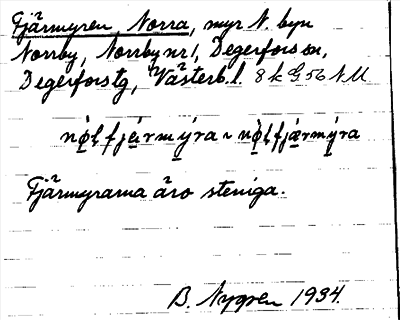 Fjärmyren Norra, myr N. byn
Norrby, Norrby nr 1, Degerfors sn,
Degerfors tg, Västerb. l. 8 k G 56 N.M
nó̤lfjärmýra ~ nò̤lfjærmýra
Fjärmyrarna äro steniga.
B. Nygren 1934.